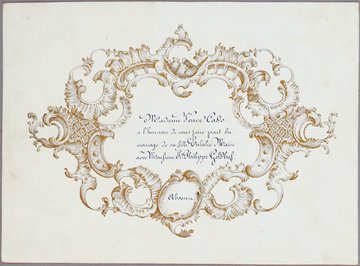 Madame Veuve Cabo
a l'honneur de vous faire part du
mariage de sa fille Eulalie Marie
avec Monsieur E. Philippe Goldhof.
Absam